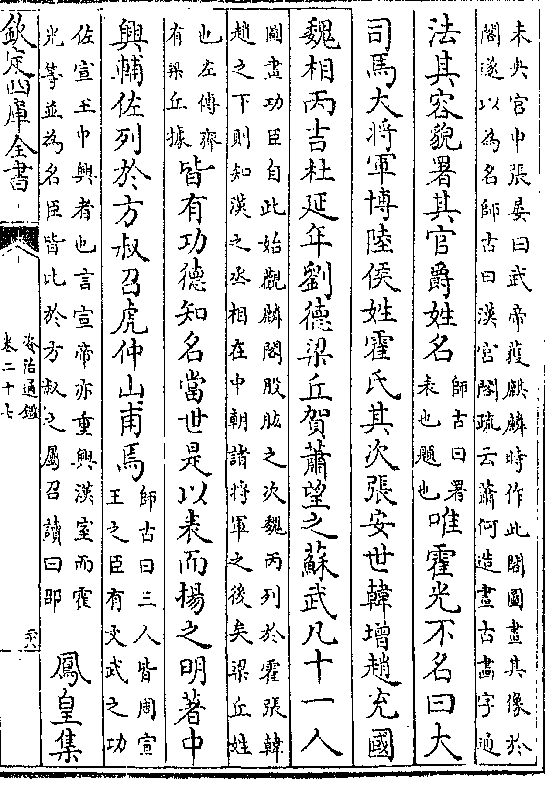 未央宫中張晏曰武帝獲麒麟時作此閣圖畫其像於
閣遂以為名師古曰漢宮閣疏云蕭何造畫古畵字通
法其容貌署其官爵姓名
師古曰署
表也題也
唯霍光不名曰大
司馬大將軍博陸侯姓霍氏其次張安世韓增趙充國
魏相丙吉杜延年劉德梁丘賀蕭望之蘇武凡十一人
圖畫功臣自此始觀麟閣股肱之次魏丙列於霍張韓
趙之下則知漢之丞相在中朝諸將軍之後矣梁丘姓
也左傳齊
有梁丘據
皆有功德知名當世是以表而揚之明著中
興輔佐列於方叔召虎仲山甫焉
師古曰三人皆周宣
王之臣有文武之功
佐宣王中興者也言宣帝亦重興漢室而霍
光等並為名臣皆比於方叔之屬召讀曰邵
鳳皇集
欽定四庫全書
資治通鑑
卷二十七